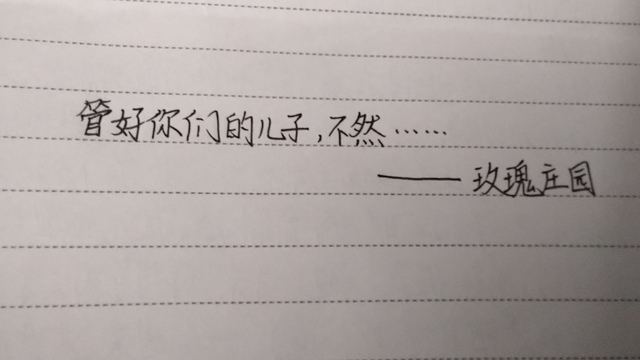 管好你们的儿子,不然……
——玫瑰庄园